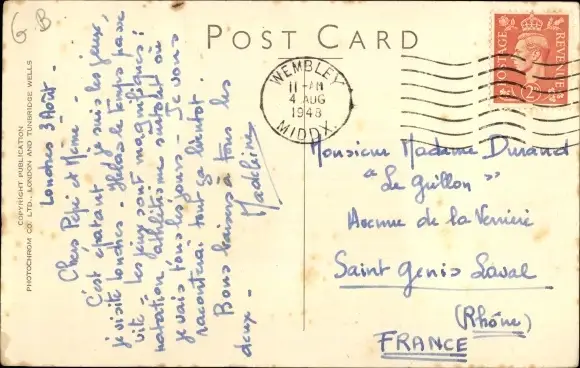 G B
POST CARD
COPYRIGHT PUBLICATION
PHOTOCHROM CO LTD., LONDON AND TUNBRIDGE WELLS
Londres 3 Août -
Chers Pépé et Mémé -
C'est épatant, je suis les jeux,
je visite Londres - Hélas le temps passe
vite - les jeux sont magnifiques :
natation, athlétisme surtout où
je vais tous les jours - Je vous
raconterai tout ça bientôt -
Bons baisers à tous les
deux -
Madeleine
WEMBLEY
11-AM
4 AUG
1948
MIDDX.
POSTAGE
REVENUE
2
Monsieur Madame Durand
"Le Grillon"
Avenue de la Verrière
Saint Genis Laval
(Rhône)
FRANCE